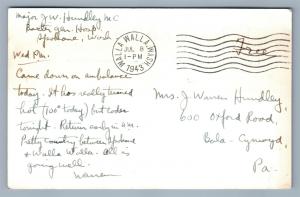 Major J.W. Hundley MC
Baxter Gen. Hosp.
Spokane, Wash
Wed Pm.
WALLA WALLA, WASH.
JUL
1-PM
1943
Free
Came down on ambulance
today. It has really turned
hot (100° today) but cooler
tonight. Return early in a.m.
Pretty country between Spokane
& Walla Walla. All is
going well.
Warren
Mrs. J Warren Hundley,
600 Oxford Road,
Bala-Cynwyd,
Pa.